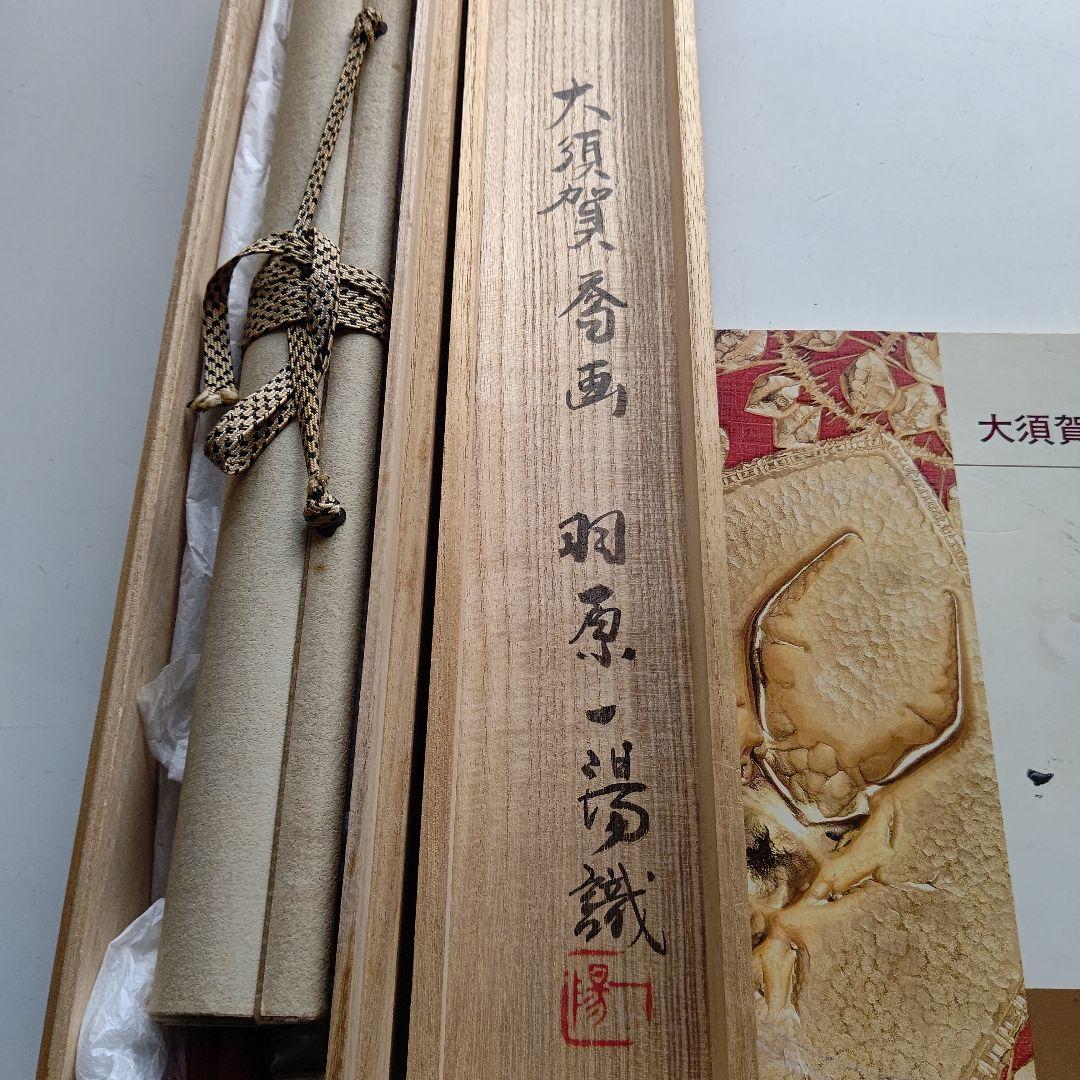 大須賀喬画 羽原一陽識
一陽
大須賀